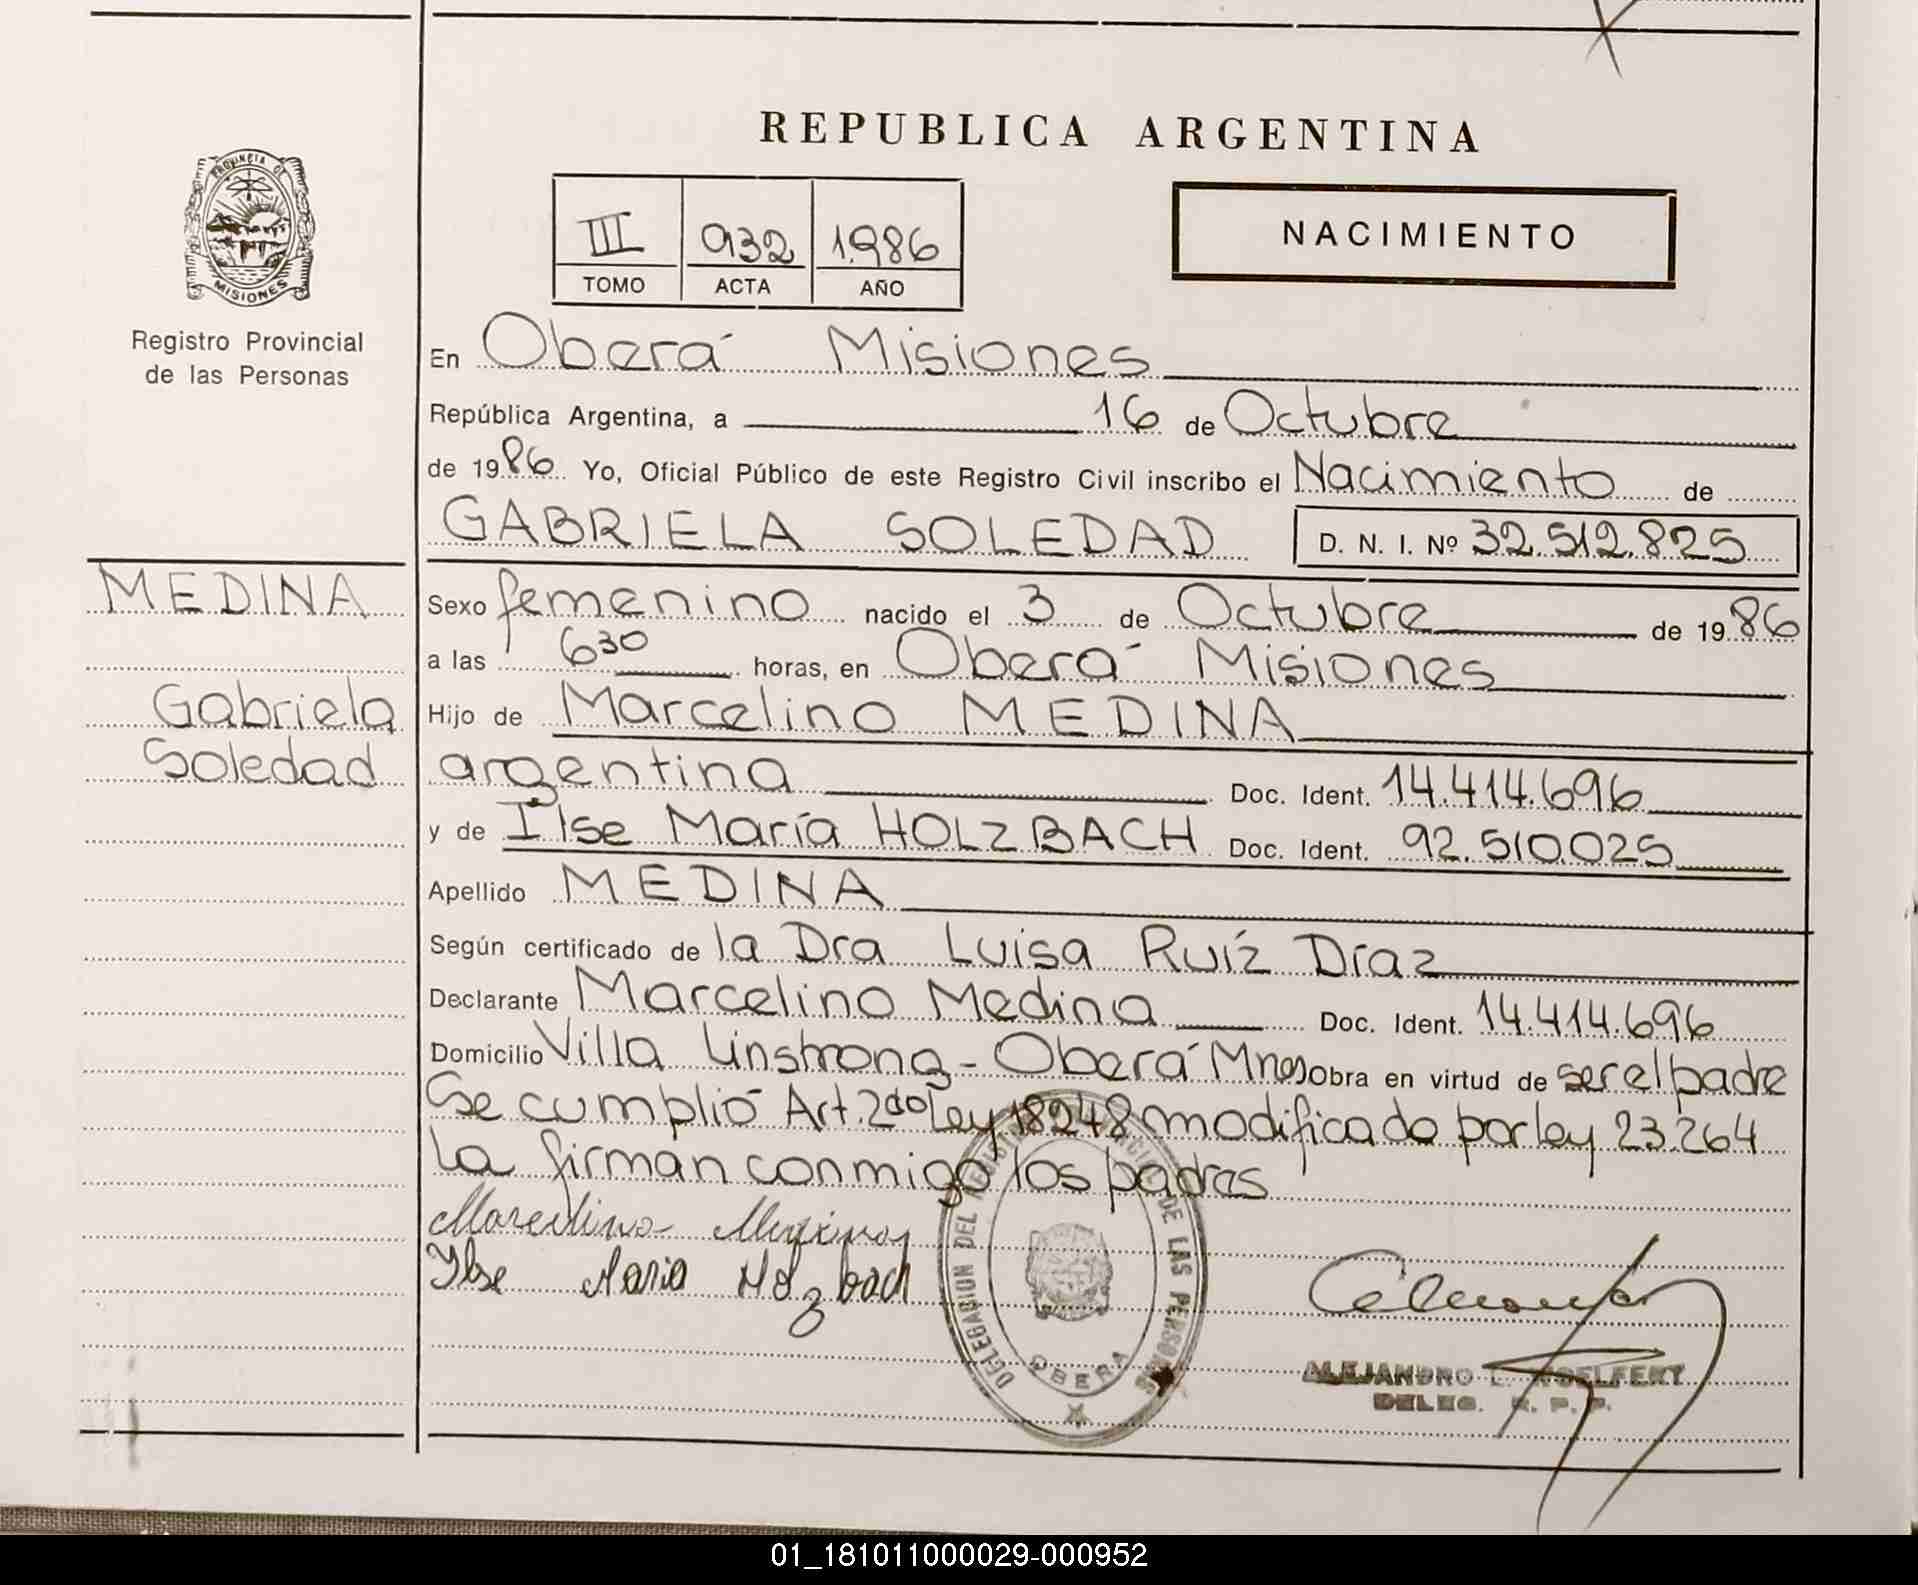 REPUBLICA ARGENTINA
PROVINCIA DE
MISIONES
Registro Provincial
de las Personas
III 932 1.986
TOMO ACTA AÑO
NACIMIENTO
En Oberá Misiones
República Argentina, a 16 de Octubre
de 1986 Yo, Oficial Público de este Registro Civil inscribo el Nacimiento de
GABRIELA SOLEDAD D. N. I. Nº 32.512.825
MEDINA
Gabriela
Soledad
Sexo femenino nacido el 3 de Octubre de 1986
a las 6 30 horas, en Oberá Misiones
Hijo de Marcelino MEDINA
argentina Doc. Ident. 14.414.696
y de Ilse María HOLZBACH Doc. Ident. 92.510.025
Apellido MEDINA
Según certificado de la Dra Luisa Ruíz Díaz
Declarante Marcelino Medina Doc. Ident. 14.414.696
Domicilio Villa Linstrong - Oberá Mnes Obra en virtud de ser el padre
Se cumplió Art. 2do Ley 18248 modificado por ley 23.264
La firman conmigo los padres
Marcelino Medina
Ilse Maria Holzbach
DELEGACION DEL REGISTRO DE LAS PERSONAS
OBERA
ALEJANDRO
DELEG. R. P. P.
01_181011000029-000952